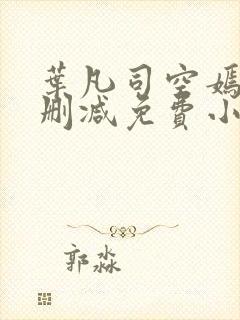 葉凡司空嫣
刪減免費小
郭淼